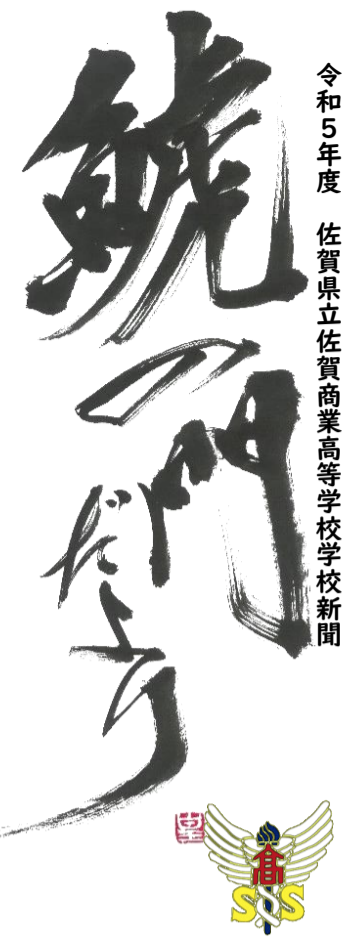 令和5年度　佐賀県立佐賀商業高等学校学校新聞
鯱の門だより
高
SS